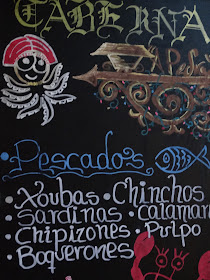 TABERNA
• Pescados
• Xoubas • Chinchos
• Sardinas • Calamar
• Chipizones • Pulpo
• Boquerones